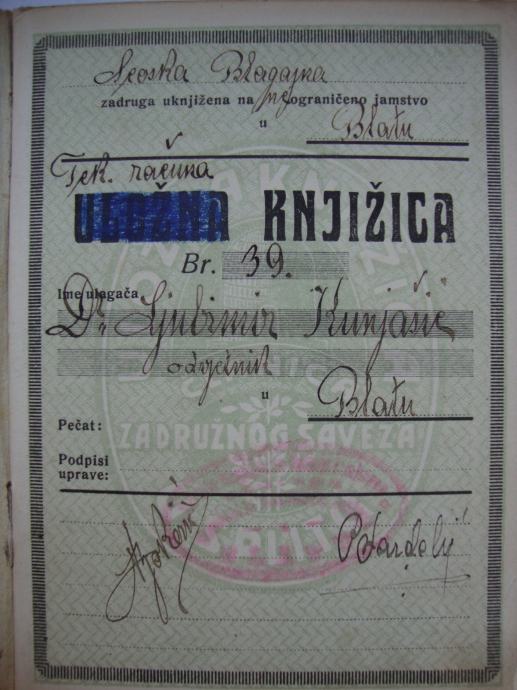 Seoska Blagajna
zadruga uknjižena na neograničeno jamstvo
u Blatu
Tek. računa
ULOŽNA KNJIŽICA
Br. 39.
Ime ulagača
Dr. Ljubimir Kunjašić
odvjetnik
u Blatu
ZADRUŽNOG SAVEZA
Pečat:
Podpisi
uprave:
SPLITU